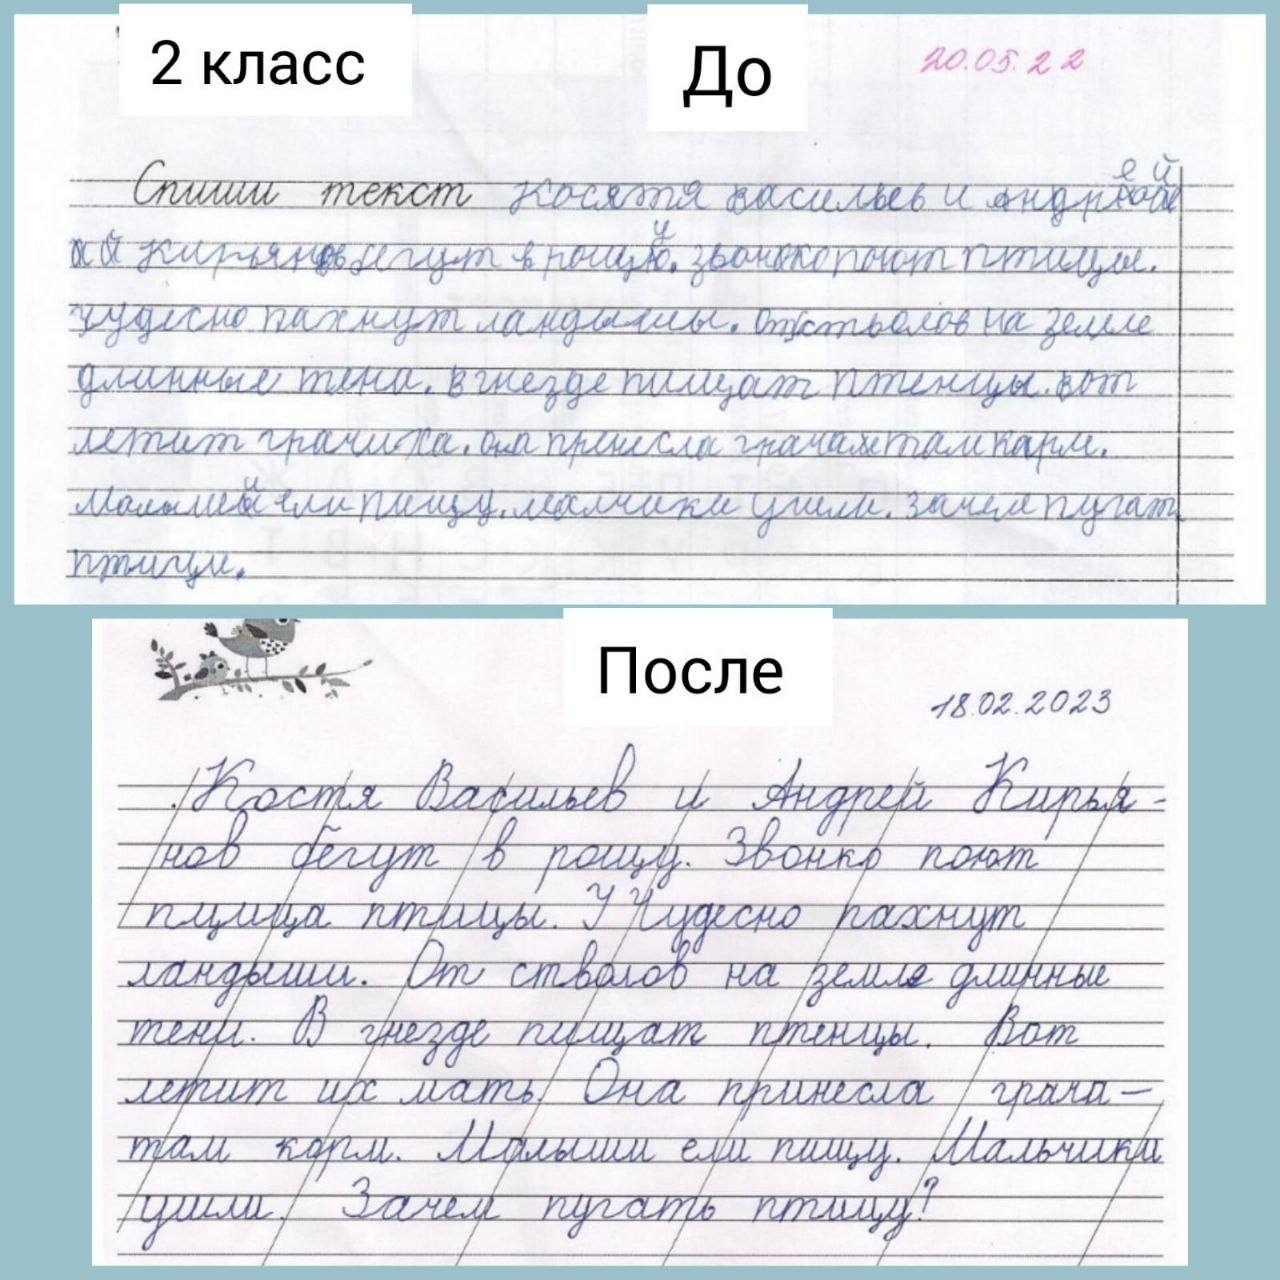 2 класс
До
20.05.22
Спиши текст Косятя васильев и андр ей
ей кирьянов бегут в рощу. звонокопоют птицы.
чудесно пахнут ландышы. от стьолов на земле
длинные тена. в гнезде пищат птенцы. вот
летит грачиха. она принесла грачатам карм.
малышей ели пищу. малчики ушли. зачем пугат
птици.
После
18.02.2023
Костя Васильев и Андрей Кирья-
нов бегут в рощу. Звонко поют
птица птицы. У Чудесно пахнут
ландыши. От стволов на земле длинные
тени. В гнезде пищат птенцы. Вот
летит их мать. Она принесла грача-
там корм. Малыши ели пищу. Мальчики
ушли. Зачем пугать птицу?